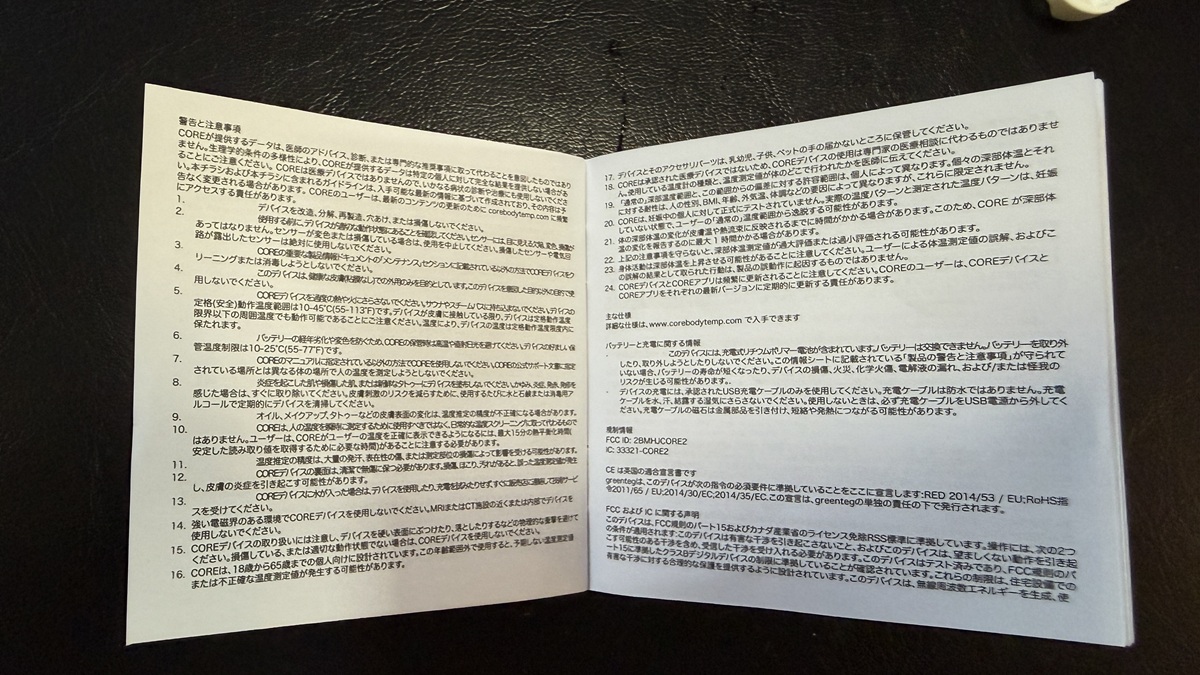 警告と注意事項
COREが提供するデータは、医師のアドバイス、診断、または専門的な推奨事項に取って代わることを意図したものではあり
ません。生理学的条件の多様性により、COREが提供するデータは特定の個人に対して完全な結果を提供しない場合があ
ることにご注意ください。COREは医療デバイスではありませんので、いかなる病状の診断や治療にも使用しないでくださ
い。本チラシおよび本チラシに含まれるガイドラインは、入手可能な最新の情報に基づいて作成されており、その内容は予
告なく変更される場合があります。COREのユーザーは、最新のコンテンツの更新のために corebodytemp.com に頻繁
にアクセスする責任があります。
1. デバイスを改造、分解、再製造、穴あけ、または損傷しないでください。
2. 使用する前に、デバイスが適切な動作状態であることを確認してください。センサーには、目に見える欠陥、変色、損傷が
あってはなりません。センサーが変色または損傷している場合は、使用を中止してください。損傷したセンサーや電気回
路が露出したセンサーは絶対に使用しないでください。
3. COREの重要な製品情報ドキュメントの「メンテナンス」セクションに記載されている以外の方法でCOREデバイスをク
リーニングまたは消毒しようとしないでください。
4. このデバイスは、健康な皮膚(粘膜なし)での外用のみを目的としています。このデバイスを意図した目的以外の目的で使
用しないでください。
5. COREデバイスを過度の熱や火にさらさないでください。サウナやスチームバスに持ち込まないでください。デバイスの
定格(安全)動作温度範囲は10-45°C(55-113°F)です。デバイスが皮膚に接触している限り、デバイスは定格動作温度
限界以下の周囲温度でも動作可能であることにご注意ください。温度により、デバイスの温度は定格動作温度限度内に
保たれます。
6. バッテリーの経年劣化や変色を防ぐため、COREの保管時は高温や直射日光を避けてください。デバイスの好ましい保
管温度制限は10-25°C(55-77°F)です。
7. COREのマニュアルに指定されている以外の方法でCOREを使用しないでください。COREの公式サポート文書に指定
されている場所とは異なる体の場所で人の温度を測定しようとしないでください。
8. 炎症を起こした肌や損傷した肌、または新鮮なタトゥーにデバイスを塗布しないでください。かゆみ、炎症、発赤、発疹を
感じた場合は、すぐに取り除いてください。皮膚刺激のリスクを減らすために、使用するたびに水と石鹸または消毒用ア
ルコールで定期的にデバイスを清掃してください。
9. オイル、メイクアップ、タトゥーなどの皮膚表面の変化は、温度推定の精度が不正確になる場合があります。
10. COREは、人の温度を瞬時に測定するために使用すべきではなく、日常的な温度スクリーニングに取って代わるもので
はありません。ユーザーは、COREがユーザーの温度を正確に表示できるようになるには、最大15分の熱平衡化時間(
安定した読み取り値を取得するために必要な時間)があることに注意する必要があります。
11. 温度推定の精度は、大量の発汗、表在性の傷、または測定部位の損傷によって影響を受ける可能性があります。
12. COREデバイスの裏面は、清潔で無傷に保つ必要があります。損傷、ほこり、汚れがあると、誤った温度測定値が発生
し、皮膚の炎症を引き起こす可能性があります。
13. COREデバイスに水が入った場合は、デバイスを使用したり、充電を試みたりせず、すぐに販売店に連絡して技術サービ
スを受けてください。
14. 強い電磁界のある環境でCOREデバイスを使用しないでください。MRIまたはCT施設の近くまたは内部でデバイスを
使用しないでください。
15. COREデバイスの取り扱いには注意し、デバイスを硬い表面にぶつけたり、落としたりするなどの物理的な衝撃を避けて
ください。損傷している、または適切な動作状態でない場合は、COREデバイスを使用しないでください。
16. COREは、18歳から65歳までの個人向けに設計されています。この年齢範囲外で使用すると、予期しない温度測定値
または不正確な温度測定値が発生する可能性があります。
17. デバイスとそのアクセサリパーツは、乳幼児、子供、ペットの手の届かないところに保管してください。
18. COREは承認された医療デバイスではないため、COREデバイスの使用は専門家の医療相談に代わるものではありませ
ん。使用している温度計の種類と、温度測定値が体のどこで行われたかを医師に伝えてください。
19. 「通常の」深部温度範囲と、この範囲からの偏差に対する許容範囲は、個人によって異なります。個々の深部体温とそれ
に対する耐性は、人の性別、BMI、年齢、外気温、体調などの要因によって異なりますが、これらに限定されません。
20. COREは、妊娠中の個人に対して正式にテストされていません。実際の温度パターンと測定された温度パターンは、妊娠
していない状態で、ユーザーの「通常の」温度範囲から逸脱する可能性があります。
21. 体の深部体温の変化が皮膚温や熱流束に反映されるまでに時間がかかる場合があります。このため、CORE が深部体
温の変化を報告するのに最大 1 時間かかる場合があります。
22. 上記の注意事項を守らないと、深部体温測定値が過大評価または過小評価される可能性があります。
23. 身体活動は深部体温を上昇させる可能性があることに注意してください。ユーザーによる体温測定値の誤解、およびこ
の誤解の結果として取られた行動は、製品の誤動作に起因するものではありません。
24. COREデバイスとCOREアプリは頻繁に更新されることに注意してください。COREのユーザーは、COREデバイスと
COREアプリをそれぞれの最新バージョンに定期的に更新する責任があります。
主な仕様
詳細な仕様は、www.corebodytemp.com で入手できます
バッテリーと充電に関する情報
· このデバイスには、充電式リチウムポリマー電池が含まれています。バッテリーは交換できません。バッテリーを取り外
したり、取り外しようとしたりしないでください。この情報シートに記載されている「製品の警告と注意事項」が守られて
いない場合、バッテリーの寿命が短くなったり、デバイスの損傷、火災、化学火傷、電解液の漏れ、および/または怪我の
リスクが生じる可能性があります。
· デバイスの充電には、承認されたUSB充電ケーブルのみを使用してください。充電ケーブルは防水ではありません。充電
ケーブルを水、汗、結露する湿気にさらさないでください。使用しないときは、必ず充電ケーブルをUSB電源から外してく
ださい。充電ケーブルの磁石は金属部品を引き付け、短絡や発熱につながる可能性があります。
規制情報
FCC ID: 2BMHJCORE2
IC: 33321-CORE2
CE は英国の適合宣言書です
greentegは、このデバイスが次の指令の必須要件に準拠していることをここに宣言します:RED 2014/53 / EU;RoHS指
令2011/65 / EU;2014/30/EC;2014/35/EC.この宣言は、greentegの単独の責任の下で発行されます。
FCC および IC に関する声明
このデバイスは、FCC規則のパート15およびカナダ産業省のライセンス免除RSS標準に準拠しています。操作には、次の2つ
の条件が適用されます:このデバイスは有害な干渉を引き起こさないこと、およびこのデバイスは、望ましくない動作を引き起
こす可能性のある干渉を含め、受信した干渉を受け入れる必要があります。このデバイスはテスト済みであり、FCC規則のパ
ート15に準拠したクラスBデジタルデバイスの制限に準拠していることが確認されています。これらの制限は、住宅設備での
有害な干渉に対する合理的な保護を提供するように設計されています。このデバイスは、無線周波数エネルギーを生成、使